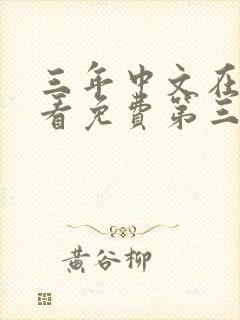 三年中文在
看免费第三
黄谷柳